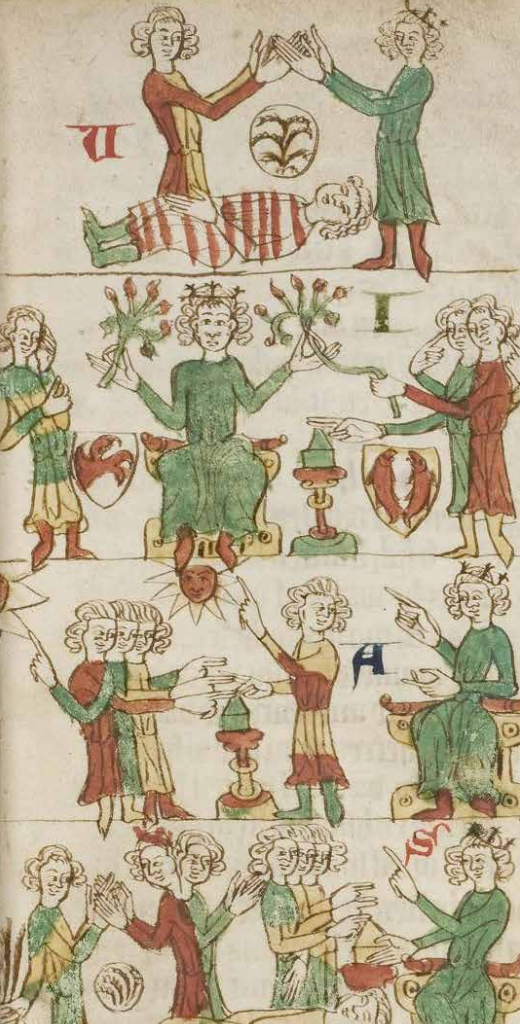 U
I
A
S